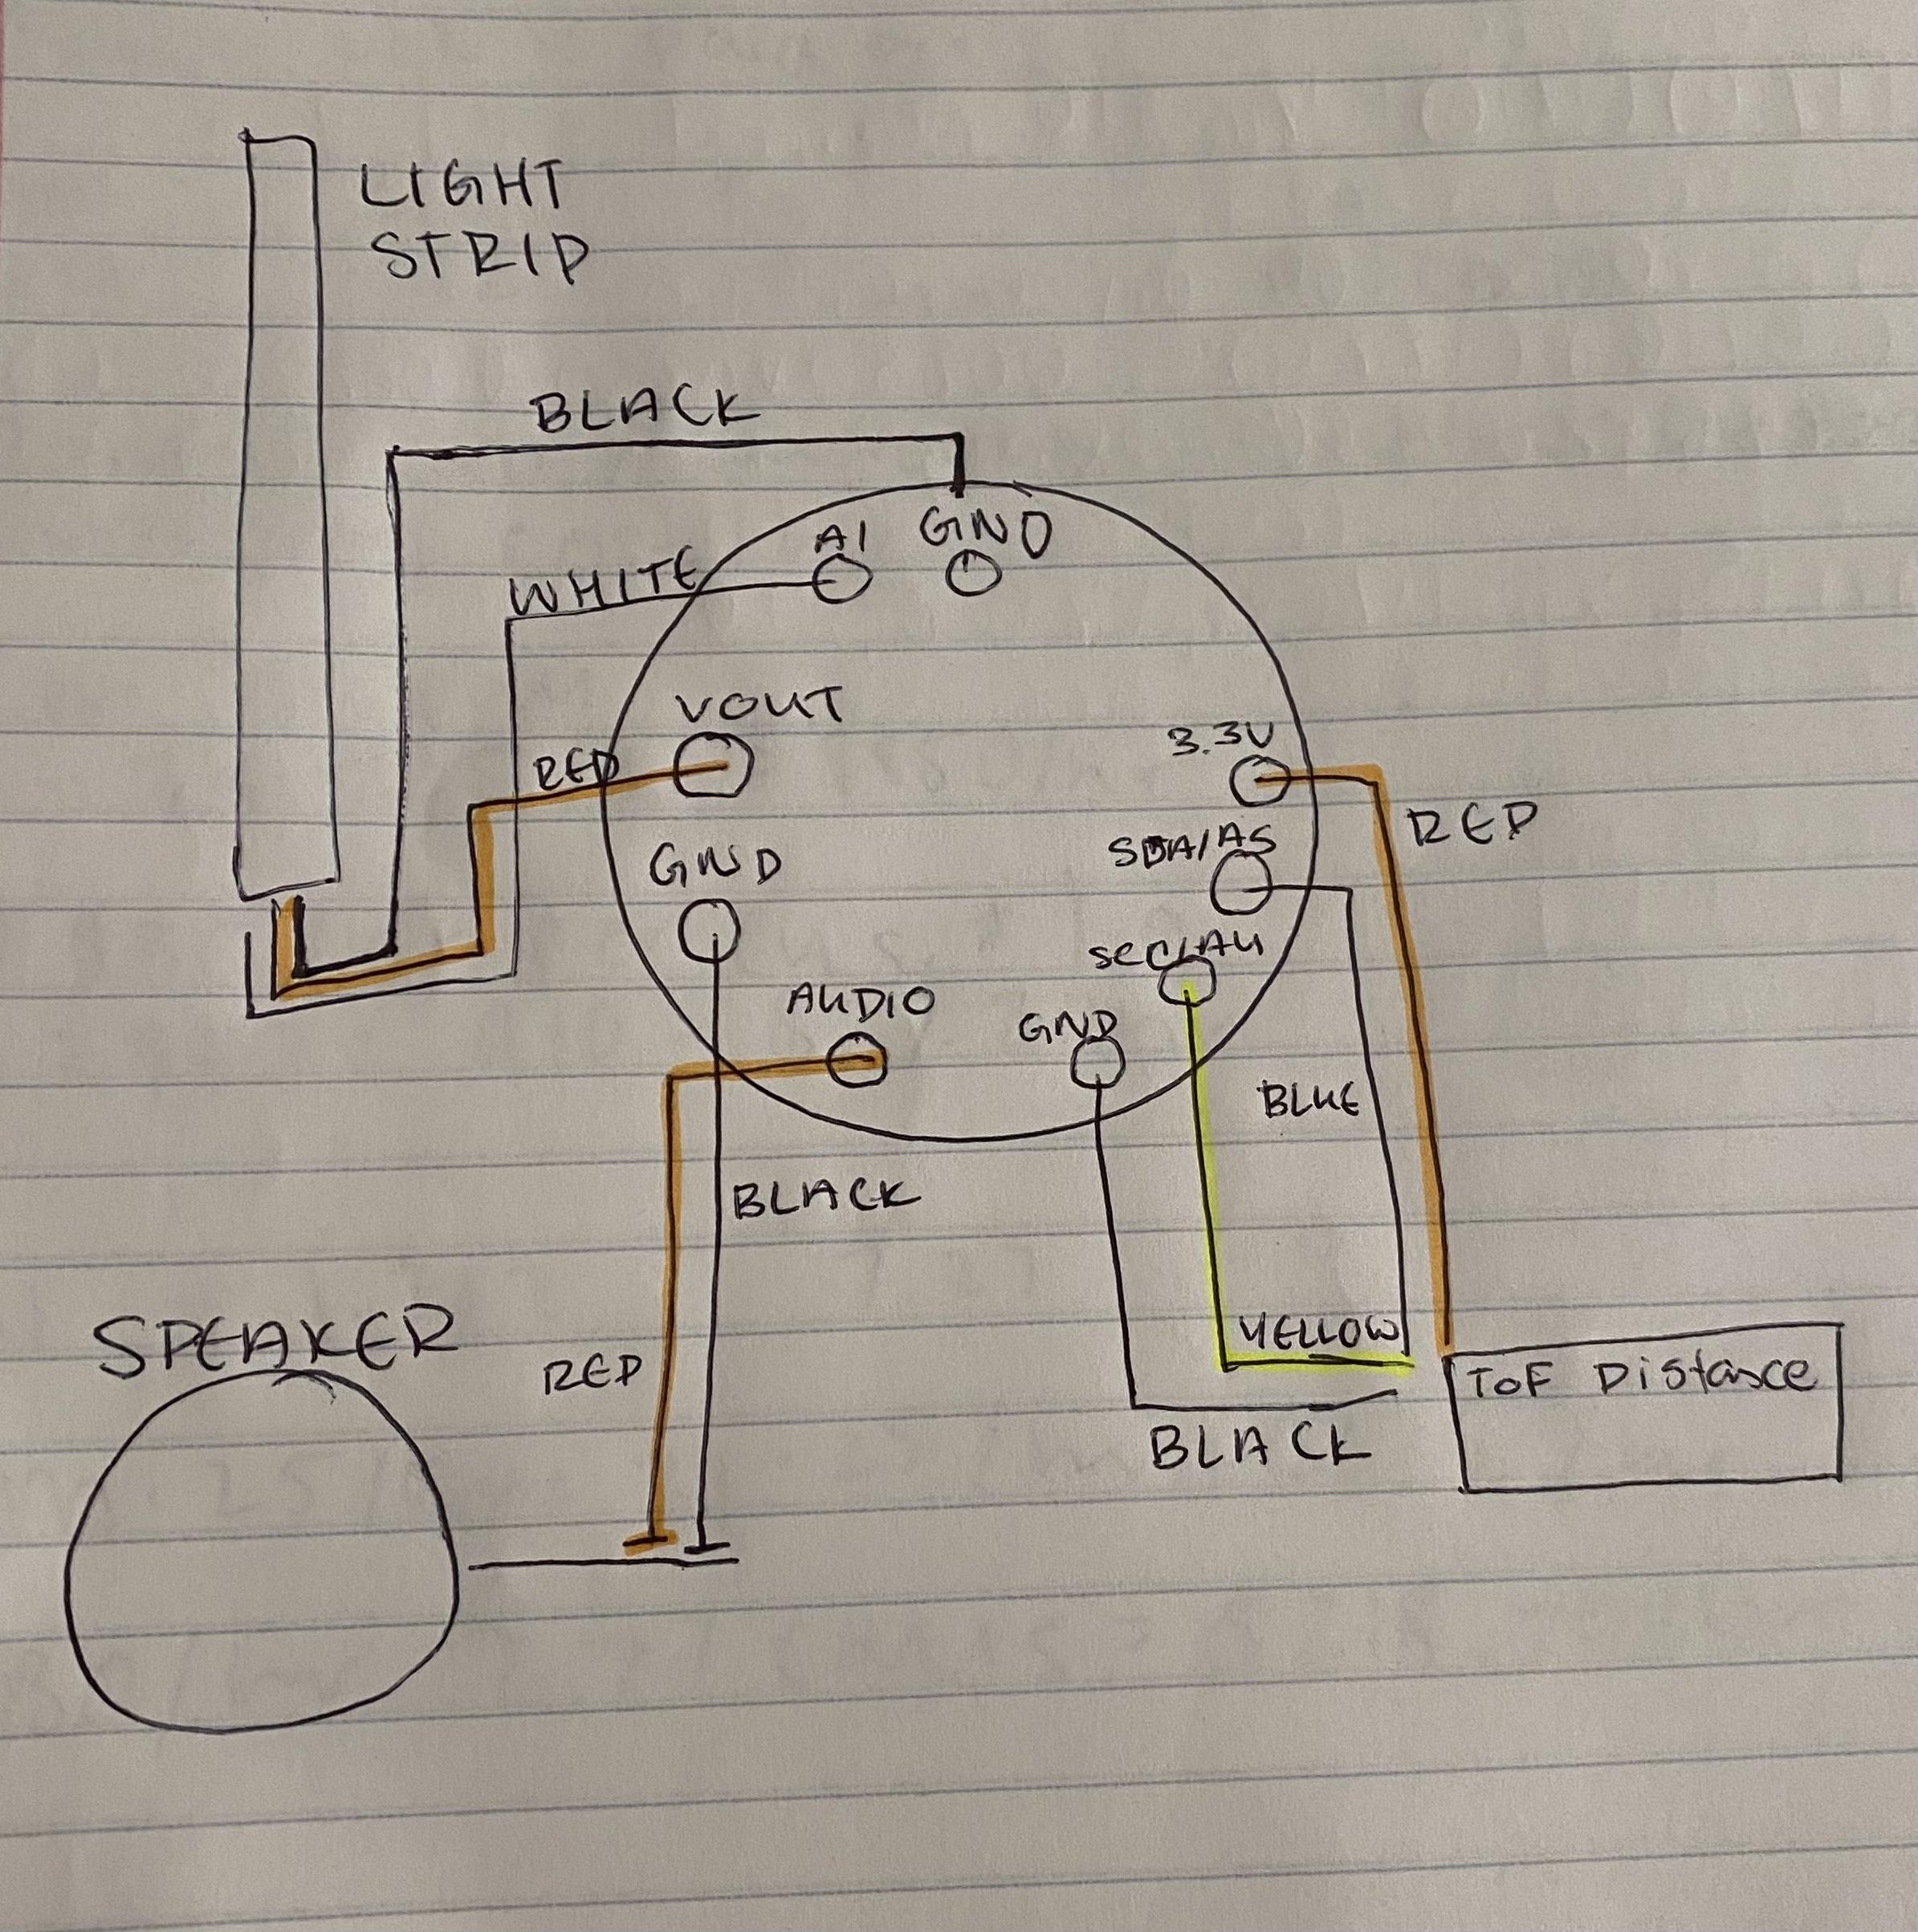 LIGHT
STRIP
BLACK
A1
GND
WHITE
VOUT
RED
3.3V
RED
GND
SDA/A5
SCL/A4
AUDIO
GND
BLUE
BLACK
YELLOW
SPEAKER
RED
ToF Distance
BLACK